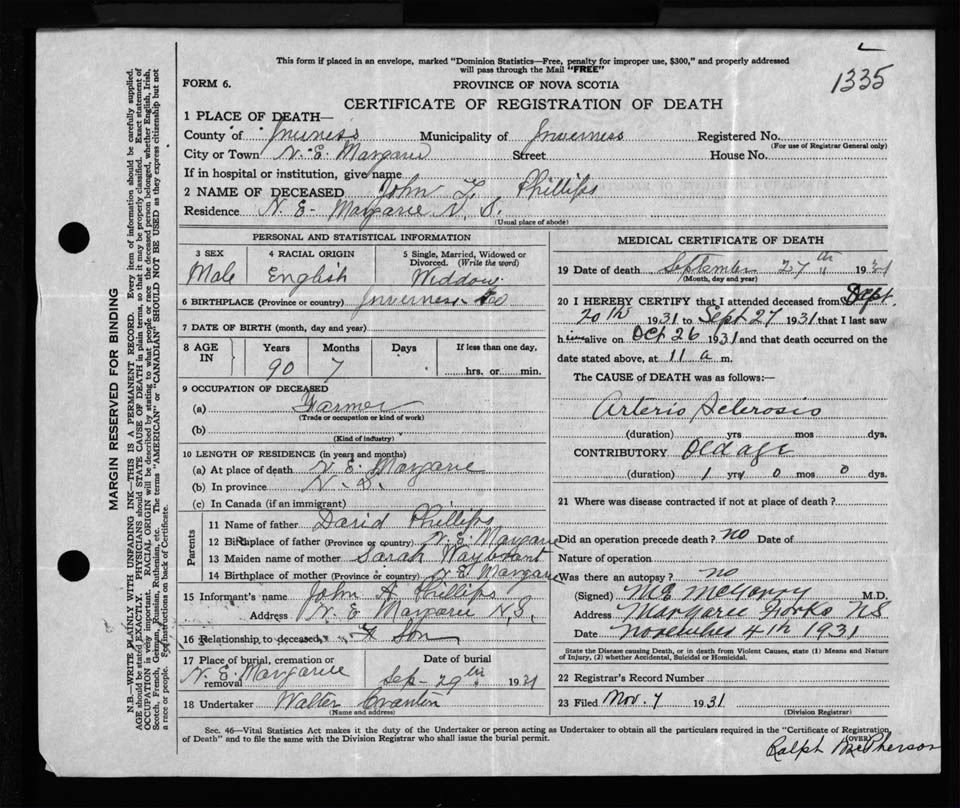 This form if placed in an envelope, marked "Dominion Statistics—Free, penalty for improper use, $300," and properly addressed
will pass through the Mail "FREE"
1335
FORM 6.
PROVINCE OF NOVA SCOTIA
CERTIFICATE OF REGISTRATION OF DEATH
1 PLACE OF DEATH—
County of Inverness Municipality of Inverness Registered No.
(For use of Registrar General only)
City or Town N. E. Margaree Street House No.
If in hospital or institution, give name
2 NAME OF DECEASED John Phillips
Residence N. E. Margaree N. S.
(Usual place of abode)
PERSONAL AND STATISTICAL INFORMATION
3 SEX 4 RACIAL ORIGIN 5 Single, Married, Widowed or Divorced. (Write the word)
Male English Widdow
6 BIRTHPLACE (Province or country) Inverness Co
7 DATE OF BIRTH (month, day and year)
8 AGE IN Years Months Days If less than one day,
90 7 hrs. or min.
9 OCCUPATION OF DECEASED
(a) Farmer
(Trade or occupation or kind of work)
(b)
(Kind of industry)
10 LENGTH OF RESIDENCE (in years and months)
(a) At place of death N. E. Margaree
(b) In province N. S.
(c) In Canada (if an immigrant)
Parents
11 Name of father David Phillips
12 Birthplace of father (Province or country) N. E. Margaree
13 Maiden name of mother Sarah
14 Birthplace of mother (Province or country) N E Margaree
15 Informant's name John A Phillips
Address N. E Margaree N.S.
16 Relationship to deceased, Son
17 Place of burial, cremation or removal Date of burial
N. E. Margaree Sep-29th 1931
18 Undertaker Walter Cranton
(Name and address)
MEDICAL CERTIFICATE OF DEATH
19 Date of death September 27th 1931
(Month, day and year)
20 I HEREBY CERTIFY that I attended deceased from Sept.
20th 1931 to Sept 27 1931 that I last saw
him alive on Oct 26 1931 and that death occurred on the
date stated above, at 11 a m.
The CAUSE of DEATH was as follows:—
Arterio Sclerosis
(duration) yrs mos dys.
CONTRIBUTORY Old age
(duration) 1 yrs 0 mos 0 dys.
21 Where was disease contracted if not at place of death?
Did an operation precede death? no Date of
Nature of operation
Was there an autopsy? no
(Signed) M.D.
Address Margaree Forks NS
Date November 4th 1931
State the Disease causing Death, or in death from Violent Causes, state (1) Means and Nature
of Injury, (2) whether Accidental, Suicidal or Homicidal.
22 Registrar's Record Number
23 Filed Nov. 7 1931
(Division Registrar)
Ralph McPherson
Sec. 46—Vital Statistics Act makes it the duty of the Undertaker or person acting as Undertaker to obtain all the particulars required in the "Certificate of Registration
of Death" and to file the same with the Division Registrar who shall issue the burial permit.
(OVER)
MARGIN RESERVED FOR BINDING
N.B.—WRITE PLAINLY WITH UNFADING INK—THIS IS A PERMANENT RECORD. Every item of information should be carefully supplied.
AGE should be stated EXACTLY. PHYSICIANS should STATE CAUSE OF DEATH in plain terms, so that it may be properly classified. Exact statement of
OCCUPATION is very important. RACIAL ORIGIN will be described by stating to what people or race the deceased person belonged, whether English, Irish,
Scotch, French, German, Russian, Ruthenian, etc. The terms "AMERICAN" or "CANADIAN" SHOULD NOT BE USED as they express citizenship but not
a race or people. See instructions on back of Certificate.